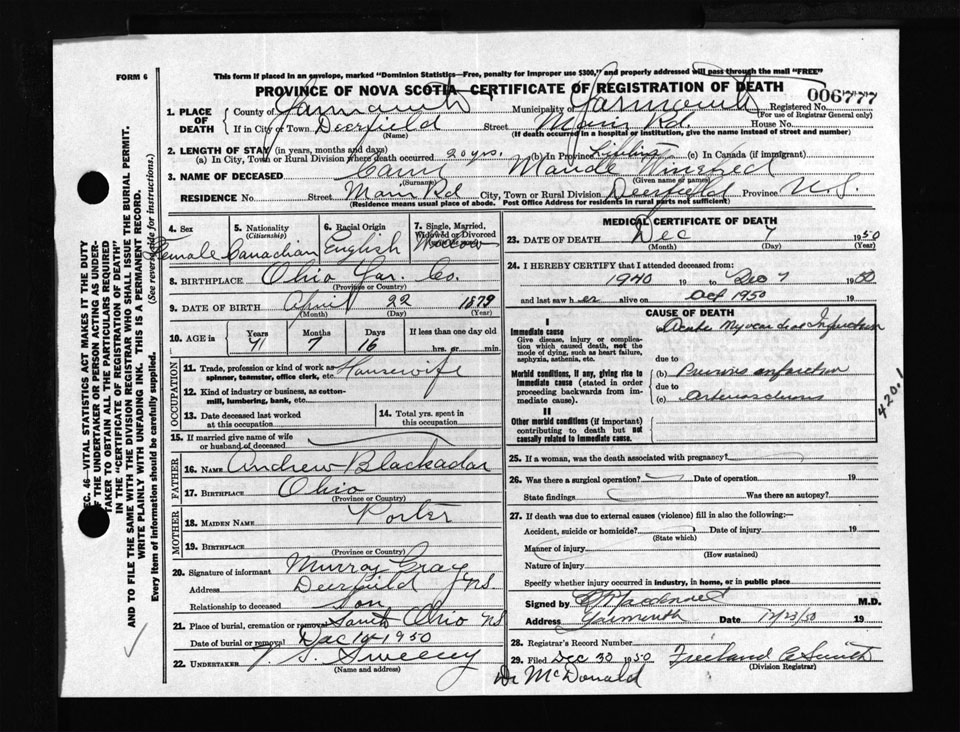 FORM 6
This form if placed in an envelope, marked "Dominion Statistics—Free, penalty for improper use $300," and properly addressed will pass through the mail "FREE"
PROVINCE OF NOVA SCOTIA—CERTIFICATE OF REGISTRATION OF DEATH
006777
1. PLACE OF DEATH { County of Yarmouth Municipality of Yarmouth Registered No.
(For use of Registrar General only)
If in City or Town Deerfield Street Main Rd. House No.
(Name) (If death occurred in a hospital or institution, give the name instead of street and number)
2. LENGTH OF STAY (in years, months and days)
(a) In City, Town or Rural Division where death occurred 20 yrs. (b) In Province (c) In Canada (if immigrant)
3. NAME OF DECEASED Maude
(Surname) (Given name or names)
RESIDENCE No. Street Main Rd City, Town or Rural Division Deerfield Province N.S.
(Residence means usual place of abode. Post Office Address for residents in rural parts not sufficient)
4. Sex Female
5. Nationality (Citizenship) Canadian
6. Racial Origin English
7. Single, Married, Widowed or Divorced Widow
8. BIRTHPLACE Ohio Yar. Co.
(Province or Country)
9. DATE OF BIRTH April 22 1879
(Month) (Day) (Year)
10. AGE in Years Months Days If less than one day old
71 7 16 hrs. or min.
OCCUPATION
11. Trade, profession or kind of work as spinner, teamster, office clerk, etc. Housewife
12. Kind of industry or business, as cotton-mill, lumbering, bank, etc.
13. Date deceased last worked at this occupation
14. Total yrs. spent in this occupation
15. If married give name of wife or husband of deceased
FATHER
16. NAME Andrew Blackadar
17. BIRTHPLACE Ohio
(Province or Country)
MOTHER
18. MAIDEN NAME Porter
19. BIRTHPLACE
(Province or Country)
20. Signature of informant Murray Gray
Address Deerfield N.S.
Relationship to deceased Son
21. Place of burial, cremation or removal South Ohio NS
Date of burial or removal Dec 1950
22. UNDERTAKER Sweeny
(Name and address)
MEDICAL CERTIFICATE OF DEATH
23. DATE OF DEATH Dec 7 1950
(Month) (Day) (Year)
24. I HEREBY CERTIFY that I attended deceased from:
1940 to Dec 7 1950
and last saw her alive on Oct 1950 19
CAUSE OF DEATH
I
Immediate cause
Give disease, injury or complication which caused death, not the mode of dying, such as heart failure, asphyxia, asthenia, etc.
Acute Myocardial Infarction
due to
Morbid conditions, if any, giving rise to immediate cause (stated in order proceeding backwards from immediate cause).
(b) Previous infarction
due to
(c) Arteriosclerosis
II
Other morbid conditions (if important) contributing to death but not causally related to immediate cause.
420.1
25. If a woman, was the death associated with pregnancy?
26. Was there a surgical operation? Date of operation 19
State findings Was there an autopsy?
27. If death was due to external causes (violence) fill in also the following:—
Accident, suicide or homicide? Date of injury 19
(State which)
Manner of injury
(How sustained)
Nature of injury
Specify whether injury occurred in industry, in home, or in public place
Signed by M.D.
Address Yarmouth Date 12/23/50 19
28. Registrar's Record Number
29. Filed Dec 30 1950 Smith
(Division Registrar)
Dr McDonald
SEC. 46—VITAL STATISTICS ACT MAKES IT THE DUTY OF THE UNDERTAKER OR PERSON ACTING AS UNDERTAKER TO OBTAIN ALL THE PARTICULARS REQUIRED IN THE "CERTIFICATE OF REGISTRATION OF DEATH" AND TO FILE THE SAME WITH THE DIVISION REGISTRAR WHO SHALL ISSUE THE BURIAL PERMIT.
WRITE PLAINLY WITH UNFADING INK. THIS IS A PERMANENT RECORD.
Every item of information should be carefully supplied. (See reverse side for instructions.)